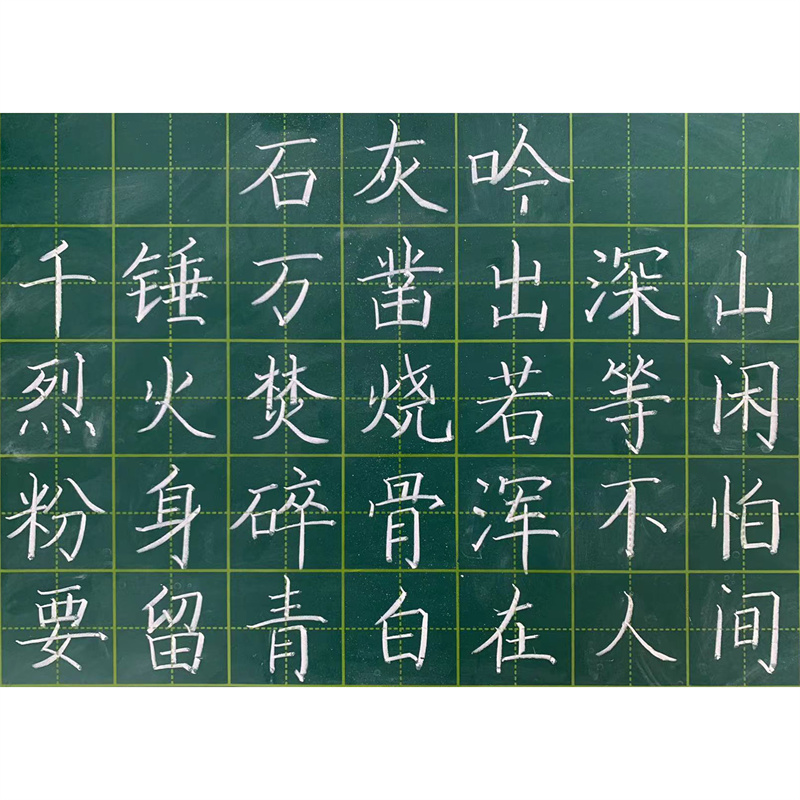 石灰吟
千锤万凿出深山
烈火焚烧若等闲
粉身碎骨浑不怕
要留青白在人间